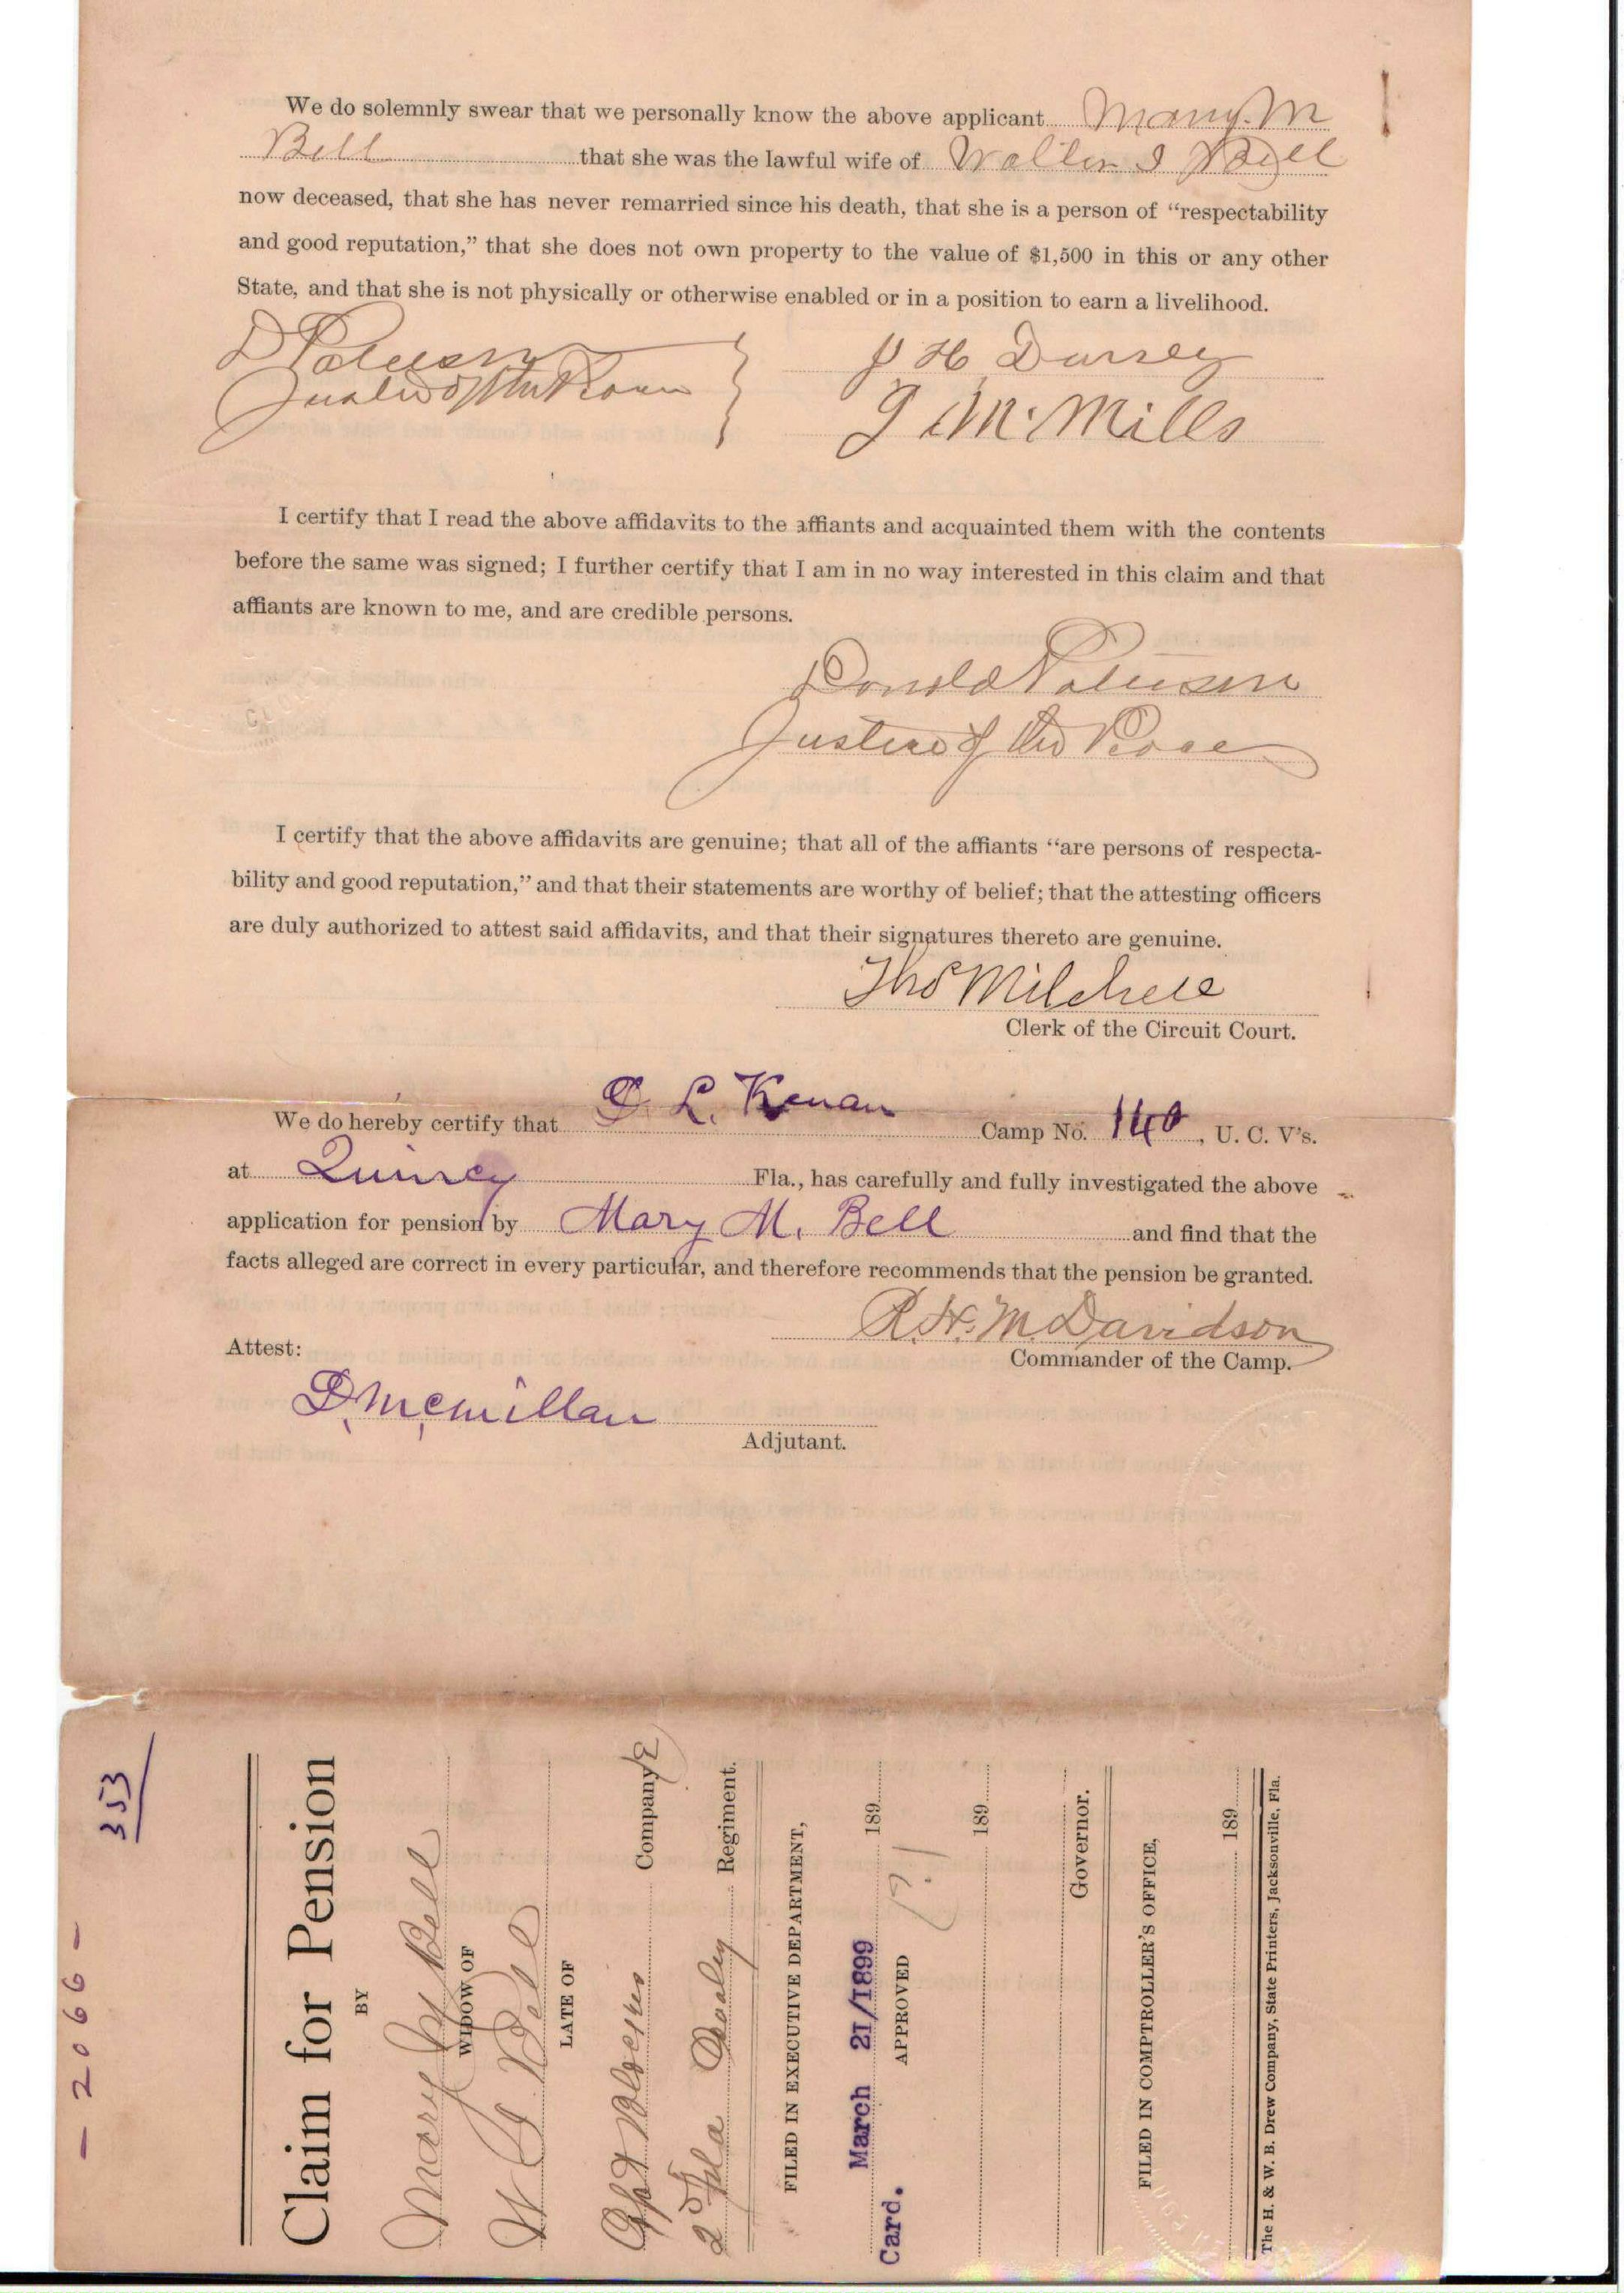 We do solemnly swear that we personally know the above applicant Mary. M
Bell that she was the lawful wife of Walter J Bell
now deceased, that she has never remarried since his death, that she is a person of “respectability
and good reputation,” that she does not own property to the value of $1,500 in this or any other
State, and that she is not physically or otherwise enabled or in a position to earn a livelihood.
J H Dursey
Justice of the Peace
McMills
I certify that I read the above affidavits to the affiants and acquainted them with the contents
before the same was signed; I further certify that I am in no way interested in this claim and that
affiants are known to me, and are credible persons.
Donald
Justice of the Peace
I certify that the above affidavits are genuine; that all of the affiants “are persons of respecta-
bility and good reputation,” and that their statements are worthy of belief; that the attesting officers
are duly authorized to attest said affidavits, and that their signatures thereto are genuine.
Thos Mitchell
Clerk of the Circuit Court.
We do hereby certify that D. L. Kenan Camp No. 140, U. C. V's.
at Quincy Fla., has carefully and fully investigated the above
application for pension by Mary M. Bell and find that the
facts alleged are correct in every particular, and therefore recommends that the pension be granted.
R. H. M. Davidson
Attest:
Commander of the Camp.
D. McMillan
Adjutant.
- 2066 -
353
Claim for Pension
BY
Mary M Bell
WIDOW OF
W J Bell
LATE OF
Capt Company E
2d Fla Cavalry Regiment.
FILED IN EXECUTIVE DEPARTMENT,
March 21/1899 189
Card. APPROVED
189
Governor.
FILED IN COMPTROLLER'S OFFICE,
189
The H. & W. B. Drew Company, State Printers, Jacksonville, Fla.